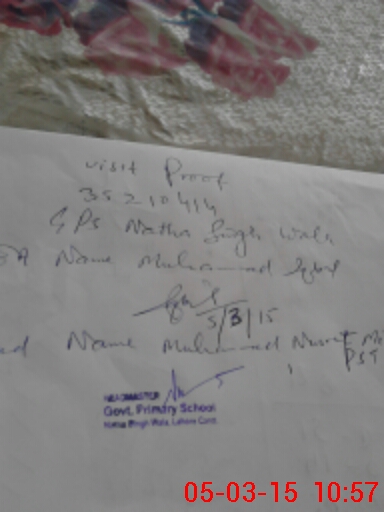 visit Proof
35210414
GPS Natha Singh Wala
Name Muhammad Iqbal
5/3/15
Name Muhammad
PST
HEADMASTER
Govt. Primary School
Natha Singh Wala, Lahore Cantt.
05-03-15 10:57